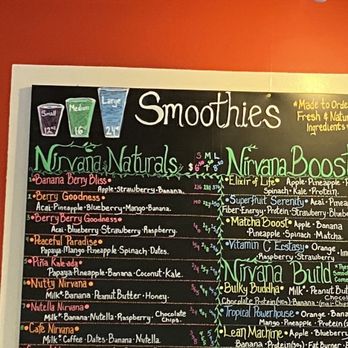 Small
12oz
Medium
16oz
Large
24oz
Smoothie's
*Made to Orde
Fresh & Natu
Ingredients
Nirvana Naturals
S M L
$ 6 7 8
Banana Berry Bliss
Apple·Strawberry·Banana
Berry Goodness
Acai·Pineapple·Blueberry·Mango·Banana
Berry Berry Goodness
Acai·Blueberry·Strawberry·Raspberry
Peaceful Paradise
Papaya·Mango·Pineapple·Spinach·Dates
Piña Kale-ada
Papaya·Pineapple·Banana·Coconut·Kale
Nutty Nirvana
Milk*·Banana·Peanut Butter·Honey
Nutella Nirvana
Milk*·Banana·Nutella·Raspberry·Chocolate Chips
Cafe Nirvana
Milk*·Coffee·Dates·Banana·Nutella
Nirvana Boost
Elixir of Life
Apple·Pineapple·P
Spinach·Kale·Protein
Superfruit Serenity
Acai·Pinea
Fiber·Energy·Protein·Strawberry·Blueb
Matcha Boost
Apple·Banana
·Pineapple·Spinach·Matcha
Vitamin C Ecstasy
Orange·
Raspberry·Strawberry
Nirvana Build
Bulky Buddha
Milk*·Peanut
Chocolate Protein
Tropical Powerhouse
Orange·Man
Mango·Pineapple·Protein
Lean Machine
Apple·Blueber
Peanut Butter·Banana